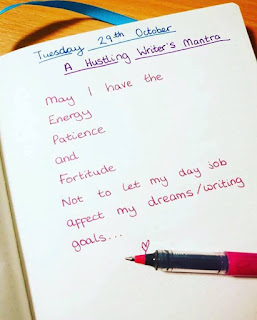 Tuesday 29th October
A Hustling Writer's Mantra
May I have the
Energy
Patience
and
Fortitude
Not to let my day job
affect my dreams/writing
goals...